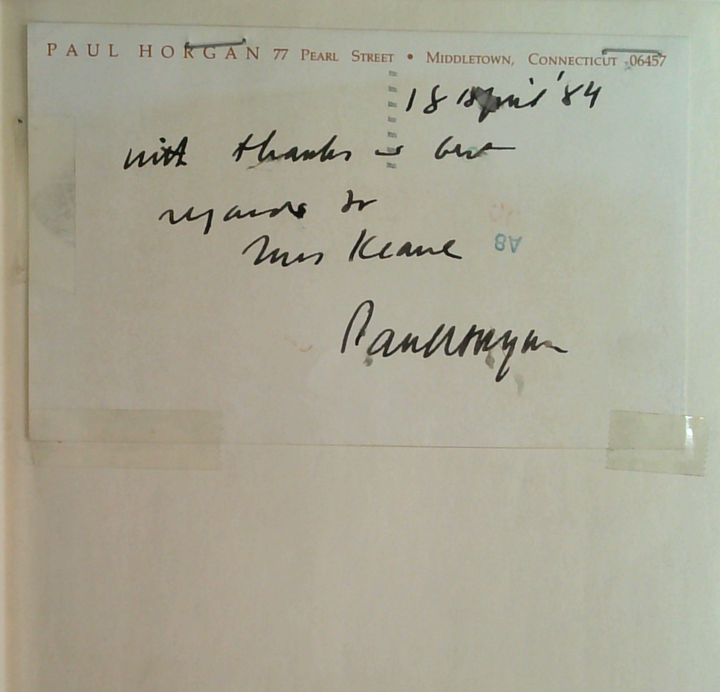 PAUL HORGAN 77 PEARL STREET • MIDDLETOWN, CONNECTICUT 06457
18 April '84
with thanks & best
regards to
Mrs Keane
A8
Paul Horgan